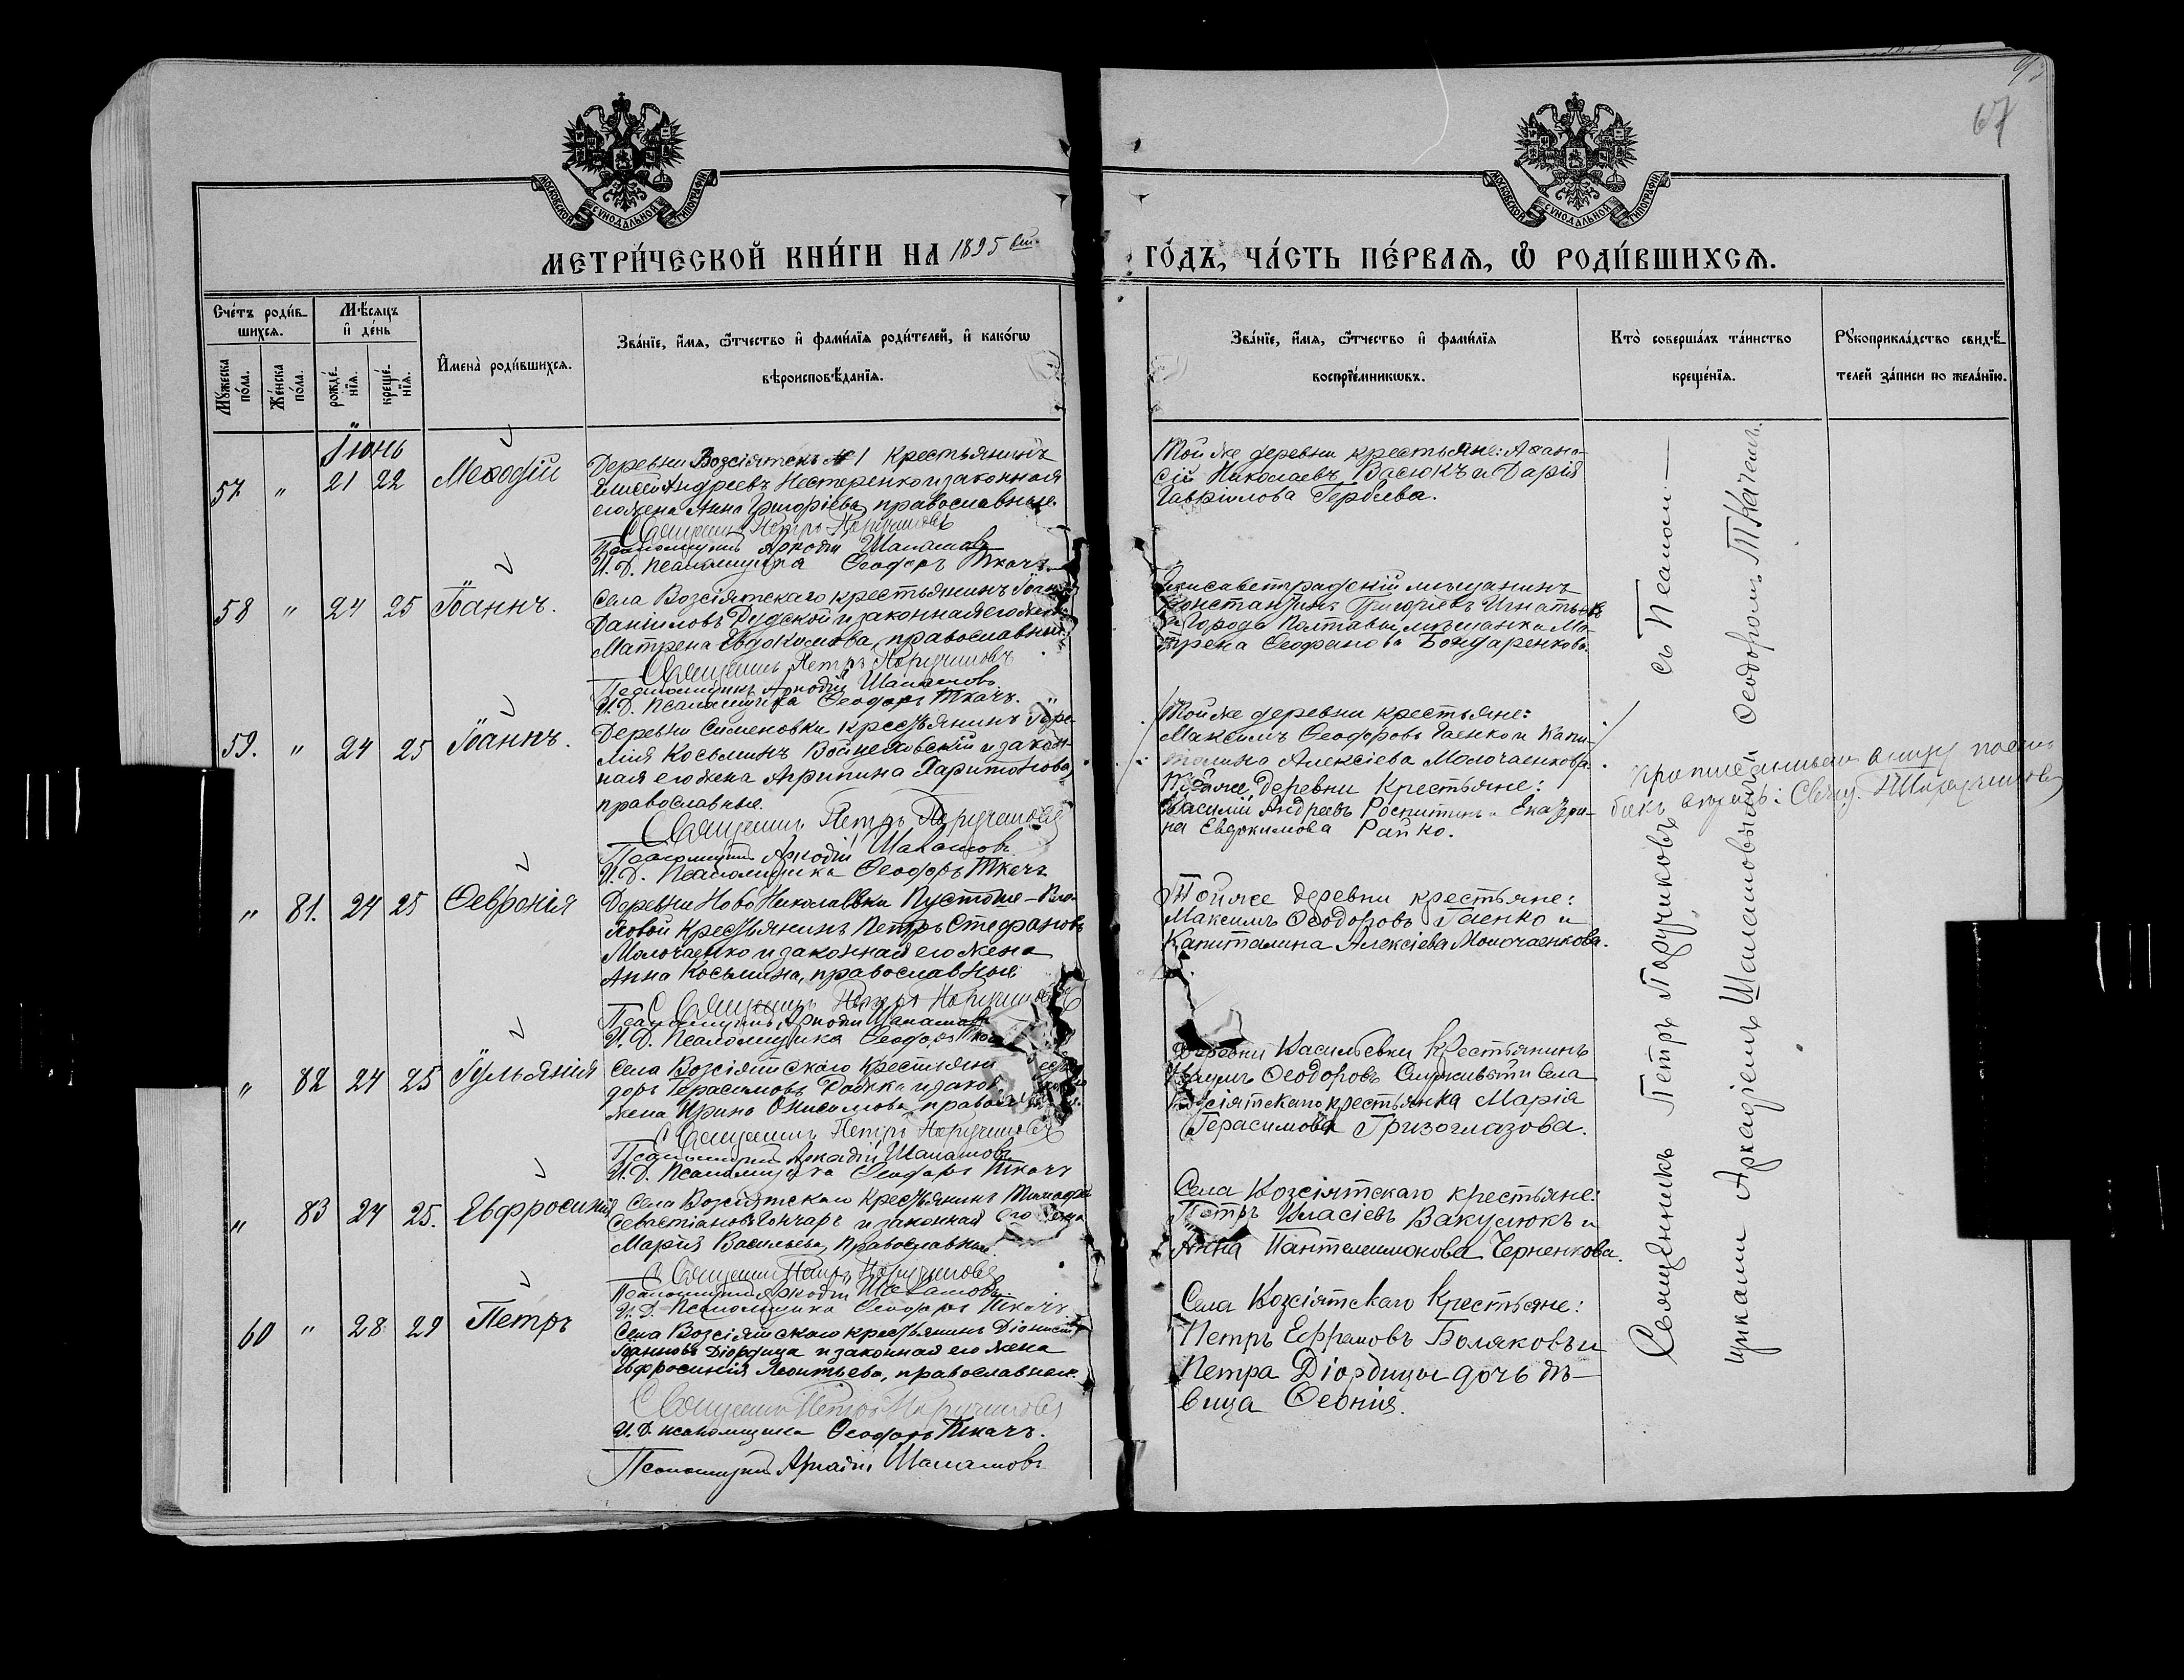 67
МОСКОВСКОЙ СУНОДАЛЬНОЙ ТИПОГРАФІИ
МОСКОВСКОЙ СУНОДАЛЬНОЙ ТИПОГРАФІИ
МЕТРИ́ЧЕСКОЙ КНИ́ГИ НА 1895 ый
ГО́ДЪ, ЧА́СТЬ ПЕ́РВАѦ, Ѽ РОДИ́ВШИХСѦ.
Сче́тъ роди́в-
шихсѧ.
Му́жеска по́ла.
Же́нска по́ла.
Мѣ́сѧцъ
и҆ де́нь
рожде́-
нїѧ.
креще́-
нїѧ.
И҆мена̀ роди́вшихсѧ.
Зва́нїе, и҆́мѧ, ѻ҆́тчество и҆ фами́лїѧ роди́телей, и҆ како́гѡ
вѣроисповѣ́данїѧ.
Зва́нїе, и҆́мѧ, ѻ҆́тчество и҆ фами́лїѧ
воспрїе́мникѡвъ.
Кто̀ соверша́лъ та́инство
креще́нїѧ.
Рꙋкоприкла́дство свидѣ́-
телей за́писи по жела́нїю.
Іюнь
57 " 21 22 Меѳодій
Деревни Возсіятскъ № 1 крестьянинъ
Елисей Андреевъ Нестеренко и законная
его жена Анна Григоріева, православные
Священникъ Петръ Поручиковъ
Псаломщикъ Аркадій Шаламовъ
И. Д. псаломщика Ѳеодоръ Ткачъ
Той же деревни крестьяне: Аѳана-
сій Николаевъ Васюкъ и Дарія
Гавріилова Гербиева.
58 " 24 25 Іоаннъ.
Села Возсіятскаго крестьянинъ
Даниловъ Рудской и законная его жена
Матрена Евдокимова, православные
Священникъ Петръ Поручиковъ
Псаломщикъ Аркадій Шаламовъ
И. Д. псаломщика Ѳеодоръ Ткачъ.
Елисаветградскій мѣщанинъ
Константинъ Григоріевъ Игнатьевъ
и города Полтавы мѣщанка Ма-
трена Ѳеофанова Бондаренкова.
59. " 24 25 Іоаннъ.
Деревни Сименовки крестьянинъ Іере-
мія Косьминъ Войцеховскій и закон-
ная его жена Агрипина Харитонова,
православные.
Священникъ Петръ Поручиковъ
Псаломщикъ Аркадій Шаламовъ
И. Д. псаломщика Ѳеодоръ Ткачъ
Той же деревни крестьяне:
Максимъ Ѳеодоровъ Гаенко и Капи-
толина Алексіева Молочаенкова.
Той же деревни крестьяне:
Василій Андреевъ Роспитинъ и Екатери-
на Евдокимова Райко.
" 81. 24 25 Ѳевронія
Деревни Ново Николаевки Пустоше-Кило-
повой крестьянинъ Петръ Стефановъ
Молочаенко и законная его жена
Анна Косьмина, православные
Священникъ Петръ Поручиковъ
Псаломщикъ Аркадій Шаламовъ
И. Д. псаломщика Ѳеодоръ Ткачъ
Той же деревни крестьяне:
Максимъ Ѳеодоровъ Гаенко и
Капиталина Алексіева Молочаенкова.
" 82 24 25 Іульянія
Села Возсіятскаго крестьяни
доръ Герасимовъ
жена Ирина Онисимова
Священникъ Петръ Поручиковъ
Псаломщикъ Аркадій Шаламовъ
И. Д. псаломщика Ѳеодоръ Ткачъ
Деревни Касильевки крестьянинъ
Наумъ Ѳеодоровъ и села
Возсіятскаго крестьянка Марія
Герасимова Гризоглазова.
" 83 24 25. Евфросинія
Села Возсіятскаго крестьянинъ Тимоѳей
Севастіановъ Гончаръ и законная его жена
Марія Васильева, православные.
Священникъ Петръ Поручиковъ
Псаломщикъ Аркадій Шаламовъ.
И. Д. псаломщика Ѳеодоръ Ткачъ
Села Возсіятскаго крестьяне:
Петръ Власіевъ Вакулюкъ и
Анна Пантелеимонова Черненкова.
60 " 28 29 Петръ
Села Возсіятскаго крестьянинъ Діонисій
Іоанновъ Діордица и законная его жена
Евфросинія Леонтьева, православные.
Священникъ Петръ Поручиковъ
И. Д. псаломщика Ѳеодоръ Ткачъ.
Псаломщикъ Аркадій Шаламовъ
Села Возсіятскаго крестьяне:
Петръ Ефремовъ Боляковъ и
Петра Діордицы дочь дѣ-
вица Ѳеонія.
Священникъ Петръ Поручиковъ съ Псалом-
щиками Аркадіемъ Шаламовымъ и Ѳеодоромъ Ткачемъ.